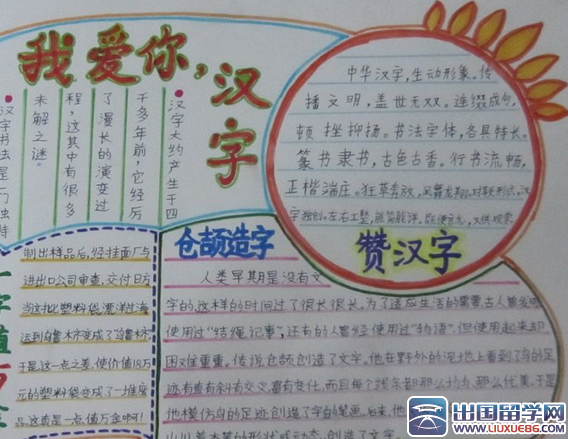 我爱你，汉字
汉字大约产生于四
千多年前，它经历
了漫长的演变过
程，这其中有很多
未解之谜。
汉字书法是一门独特
中华汉字，生动形象。传
播文明，盖世无双。连缀成句，
顿挫抑扬。书法字体，各具特长。
篆书隶书，古色古香。行书流畅，
正楷端庄。狂草奔放，
赞汉字
一字值万金
制出样品后，经挂面厂与
进出口公司审查，交付日方
当这批塑料袋漂洋过海
运到乌鲁木齐变成了"乌鲁木齐
于是这一点之差，使价值18万
元的塑料袋变成了一堆废
品，这真是一点值万金啊！
仓颉造字
人类早期是没有文
字的，这样的时间过了很长很长。为了适应生活的需要古人曾发明
使用过"结绳记事"，还有的人曾经使用过"物语"，但使用起来却
困难重重。传说仓颉创造了文字，他在野外的泥地上看到了鸟的足
迹有直有斜有交叉，富有变化，而且每个线条都那么匀称，那么优美，于是
他模仿鸟的足迹创造了字的笔画。后来，他
出国留学网
WWW.LIUXUE86.COM